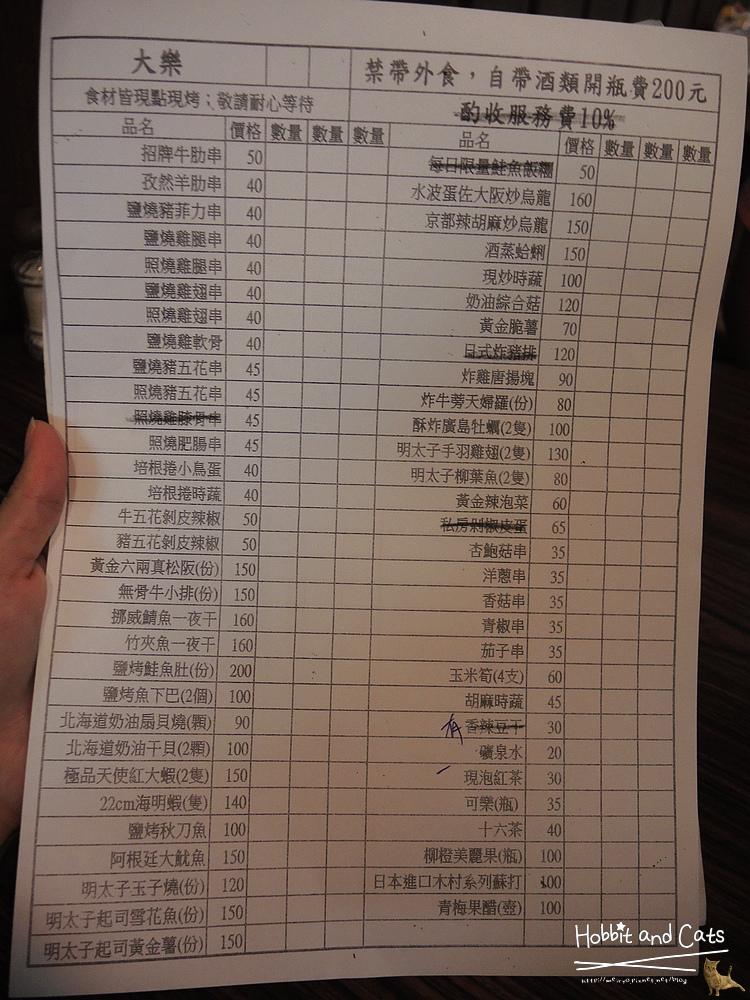 大樂
禁帶外食，自帶酒類開瓶費200元
食材皆現點現烤；敬請耐心等待
酌收服務費10%
品名 價格 數量 數量 數量
招牌牛肋串 50
孜然羊肋串 40
鹽燒豬菲力串 40
鹽燒雞腿串 40
照燒雞腿串 40
鹽燒雞翅串 40
照燒雞翅串 40
鹽燒雞軟骨 40
鹽燒豬五花串 45
照燒豬五花串 45
照燒雞膝骨串 45
照燒肥腸串 45
培根捲小鳥蛋 40
培根捲時蔬 40
牛五花剝皮辣椒 50
豬五花剝皮辣椒 50
黃金六兩真松阪(份) 150
無骨牛小排(份) 150
挪威鯖魚一夜干 160
竹夾魚一夜干 160
鹽烤鮭魚肚(份) 200
鹽烤魚下巴(2個) 100
北海道奶油扇貝燒(顆) 90
北海道奶油干貝(2顆) 100
極品天使紅大蝦(2隻) 150
22cm海明蝦(隻) 140
鹽烤秋刀魚 100
阿根廷大魷魚 150
明太子玉子燒(份) 120
明太子起司雪花魚(份) 150
明太子起司黃金薯(份) 150
品名 價格 數量 數量 數量
每日限量鮭魚飯糰 50
水波蛋佐大阪炒烏龍 160
京都辣胡麻炒烏龍 150
酒蒸蛤蜊 150
現炒時蔬 100
奶油綜合菇 120
黃金脆薯 70
日式炸豬排 120
炸雞唐揚塊 90
炸牛蒡天婦羅(份) 80
酥炸廣島牡蠣(2隻) 100
明太子手羽雞翅(2隻) 130
明太子柳葉魚(2隻) 80
黃金辣泡菜 60
私房剁椒皮蛋 65
杏鮑菇串 35
洋蔥串 35
香菇串 35
青椒串 35
茄子串 35
玉米筍(4支) 60
胡麻時蔬 45
有 香辣豆干 30
礦泉水 20
現泡紅茶 30
可樂(瓶) 35
十六茶 40
柳橙美麗果(瓶) 100
日本進口木村系列蘇打 100
青梅果醋(壺) 100
Hobbit and Cats